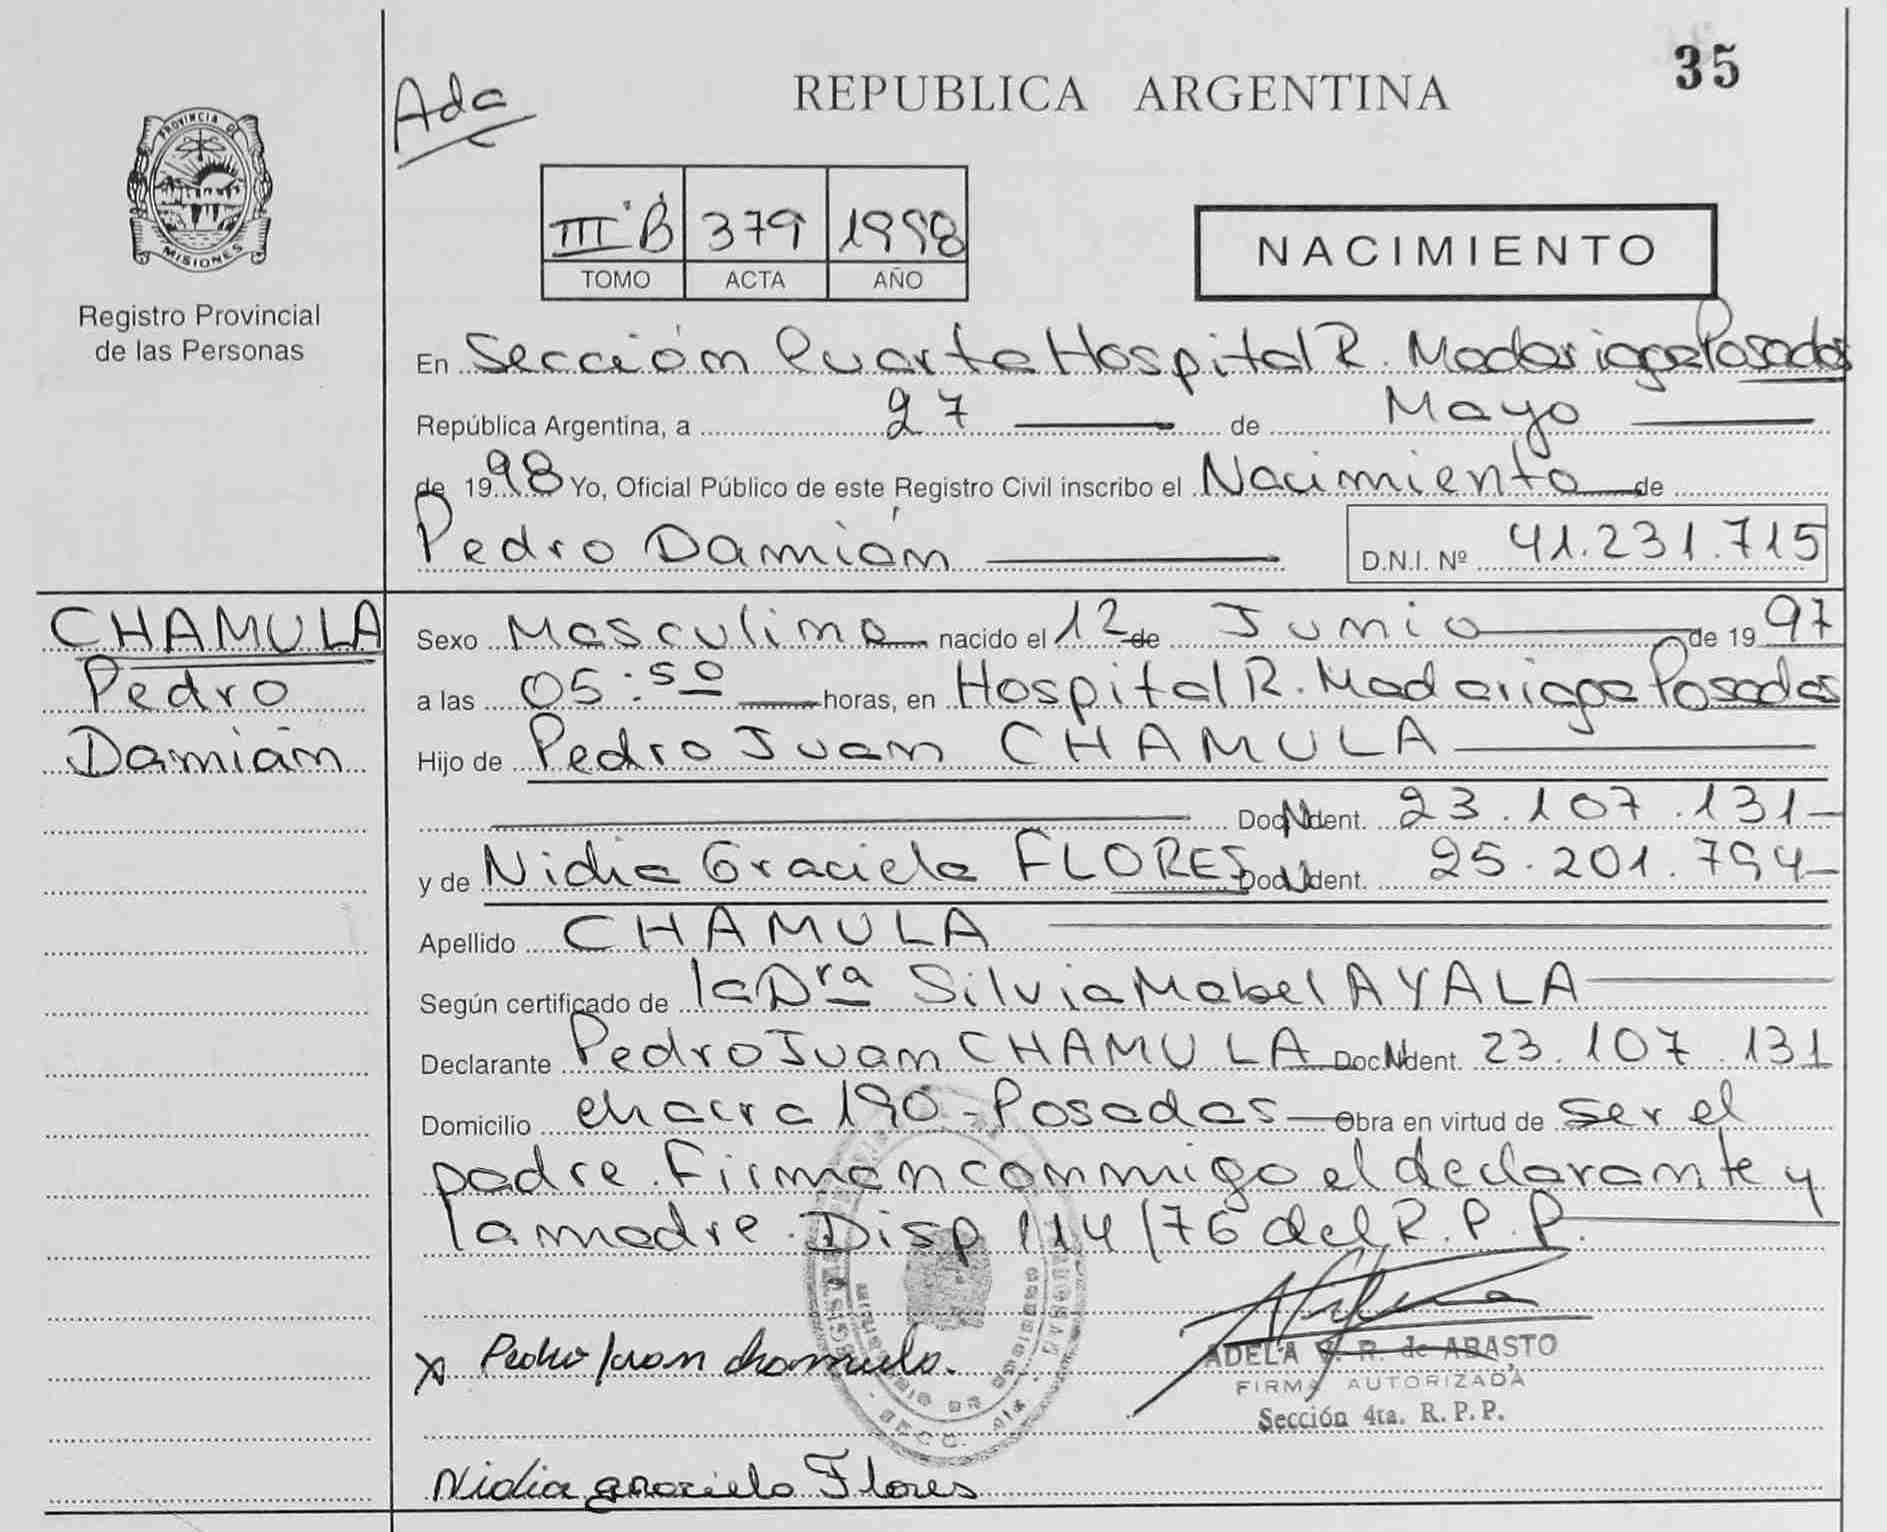 35
Ada
REPUBLICA ARGENTINA
PROVINCIA DE
MISIONES
Registro Provincial
de las Personas
III°B 379 1998
TOMO ACTA AÑO
NACIMIENTO
En Sección Cuarta Hospital R. Madariaga Posadas
República Argentina, a 27 de Mayo
de 1998 Yo, Oficial Público de este Registro Civil inscribo el Nacimiento de
Pedro Damián D.N.I. Nº 41.231.715
CHAMULA
Pedro
Damián
Sexo Masculino nacido el 12 de Junio de 1997
a las 05:50 horas, en Hospital R. Madariaga Posadas
Hijo de Pedro Juan CHAMULA
Doc. Ident. 23.107.131
y de Nidia Graciela FLORES Doc. Ident. 25.201.794
Apellido CHAMULA
Según certificado de la Dra Silvia Mabel AYALA
Declarante Pedro Juan CHAMULA Doc. Ident. 23.107.131
Domicilio chacra 190 - Posadas Obra en virtud de ser el
padre. Firman conmigo el declarante y
la madre. Disp 114/76 del R.P.P.
x Pedro Juan chamula.
ADELA R. de ABASTO
FIRMA AUTORIZADA
Sección 4ta. R. P. P.
Nidia graciela Flores